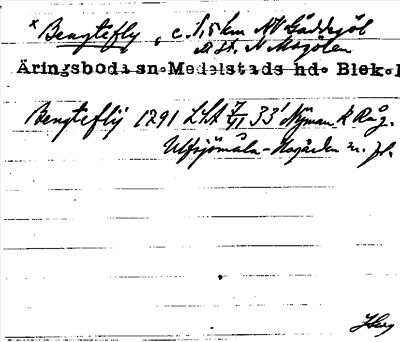 * Bengtefly, c. 1,5 km NV Gäddegöl
o. st. N Mogölen
Äringsboda sn. Medelstads hd. Blek. l
Bengteflÿ 1791 LSA 7/VI 33' Nyman k Råg.
Ulfsjömåla-Hogården m. fl.